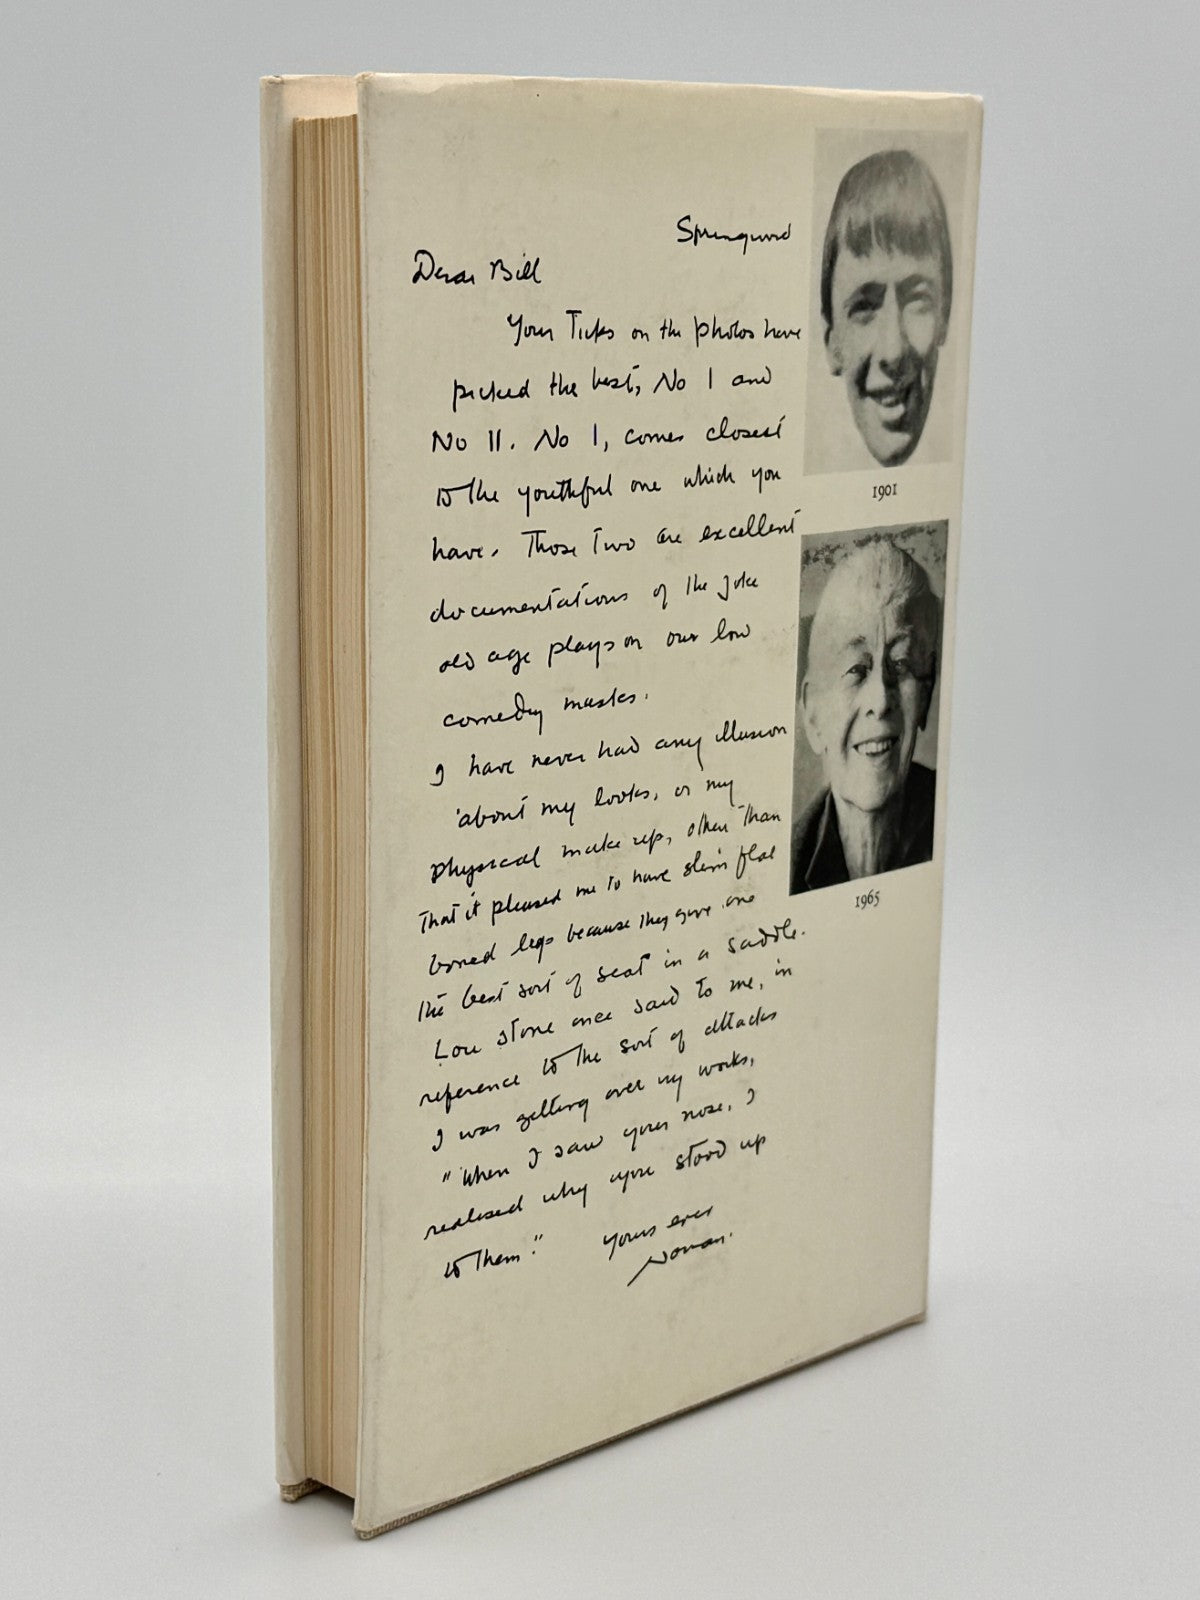 Springwood
Dear Bill
Your Ticks on the photos have
picked the best, No I and
No II. No I, comes closest
to the youthful one which you
have. Those Two are excellent
documentations of the joke
old age plays on our low
comedy masks.
I have never had any illusion
about my looks, or my
physical make up, other than
that it pleased me to have slim flat
boned legs because they give one
the best sort of seat in a saddle.
Lou Stone once said to me, in
reference to the sort of attacks
I was getting over my works,
"When I saw your nose, I
realised why you stood up
to them."
Yours ever
Norman.
1901
1965